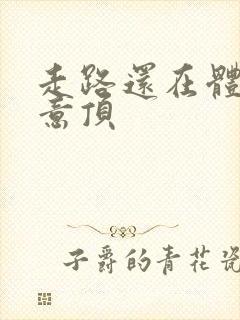 走路還在體
意頂
子爵的青花瓷